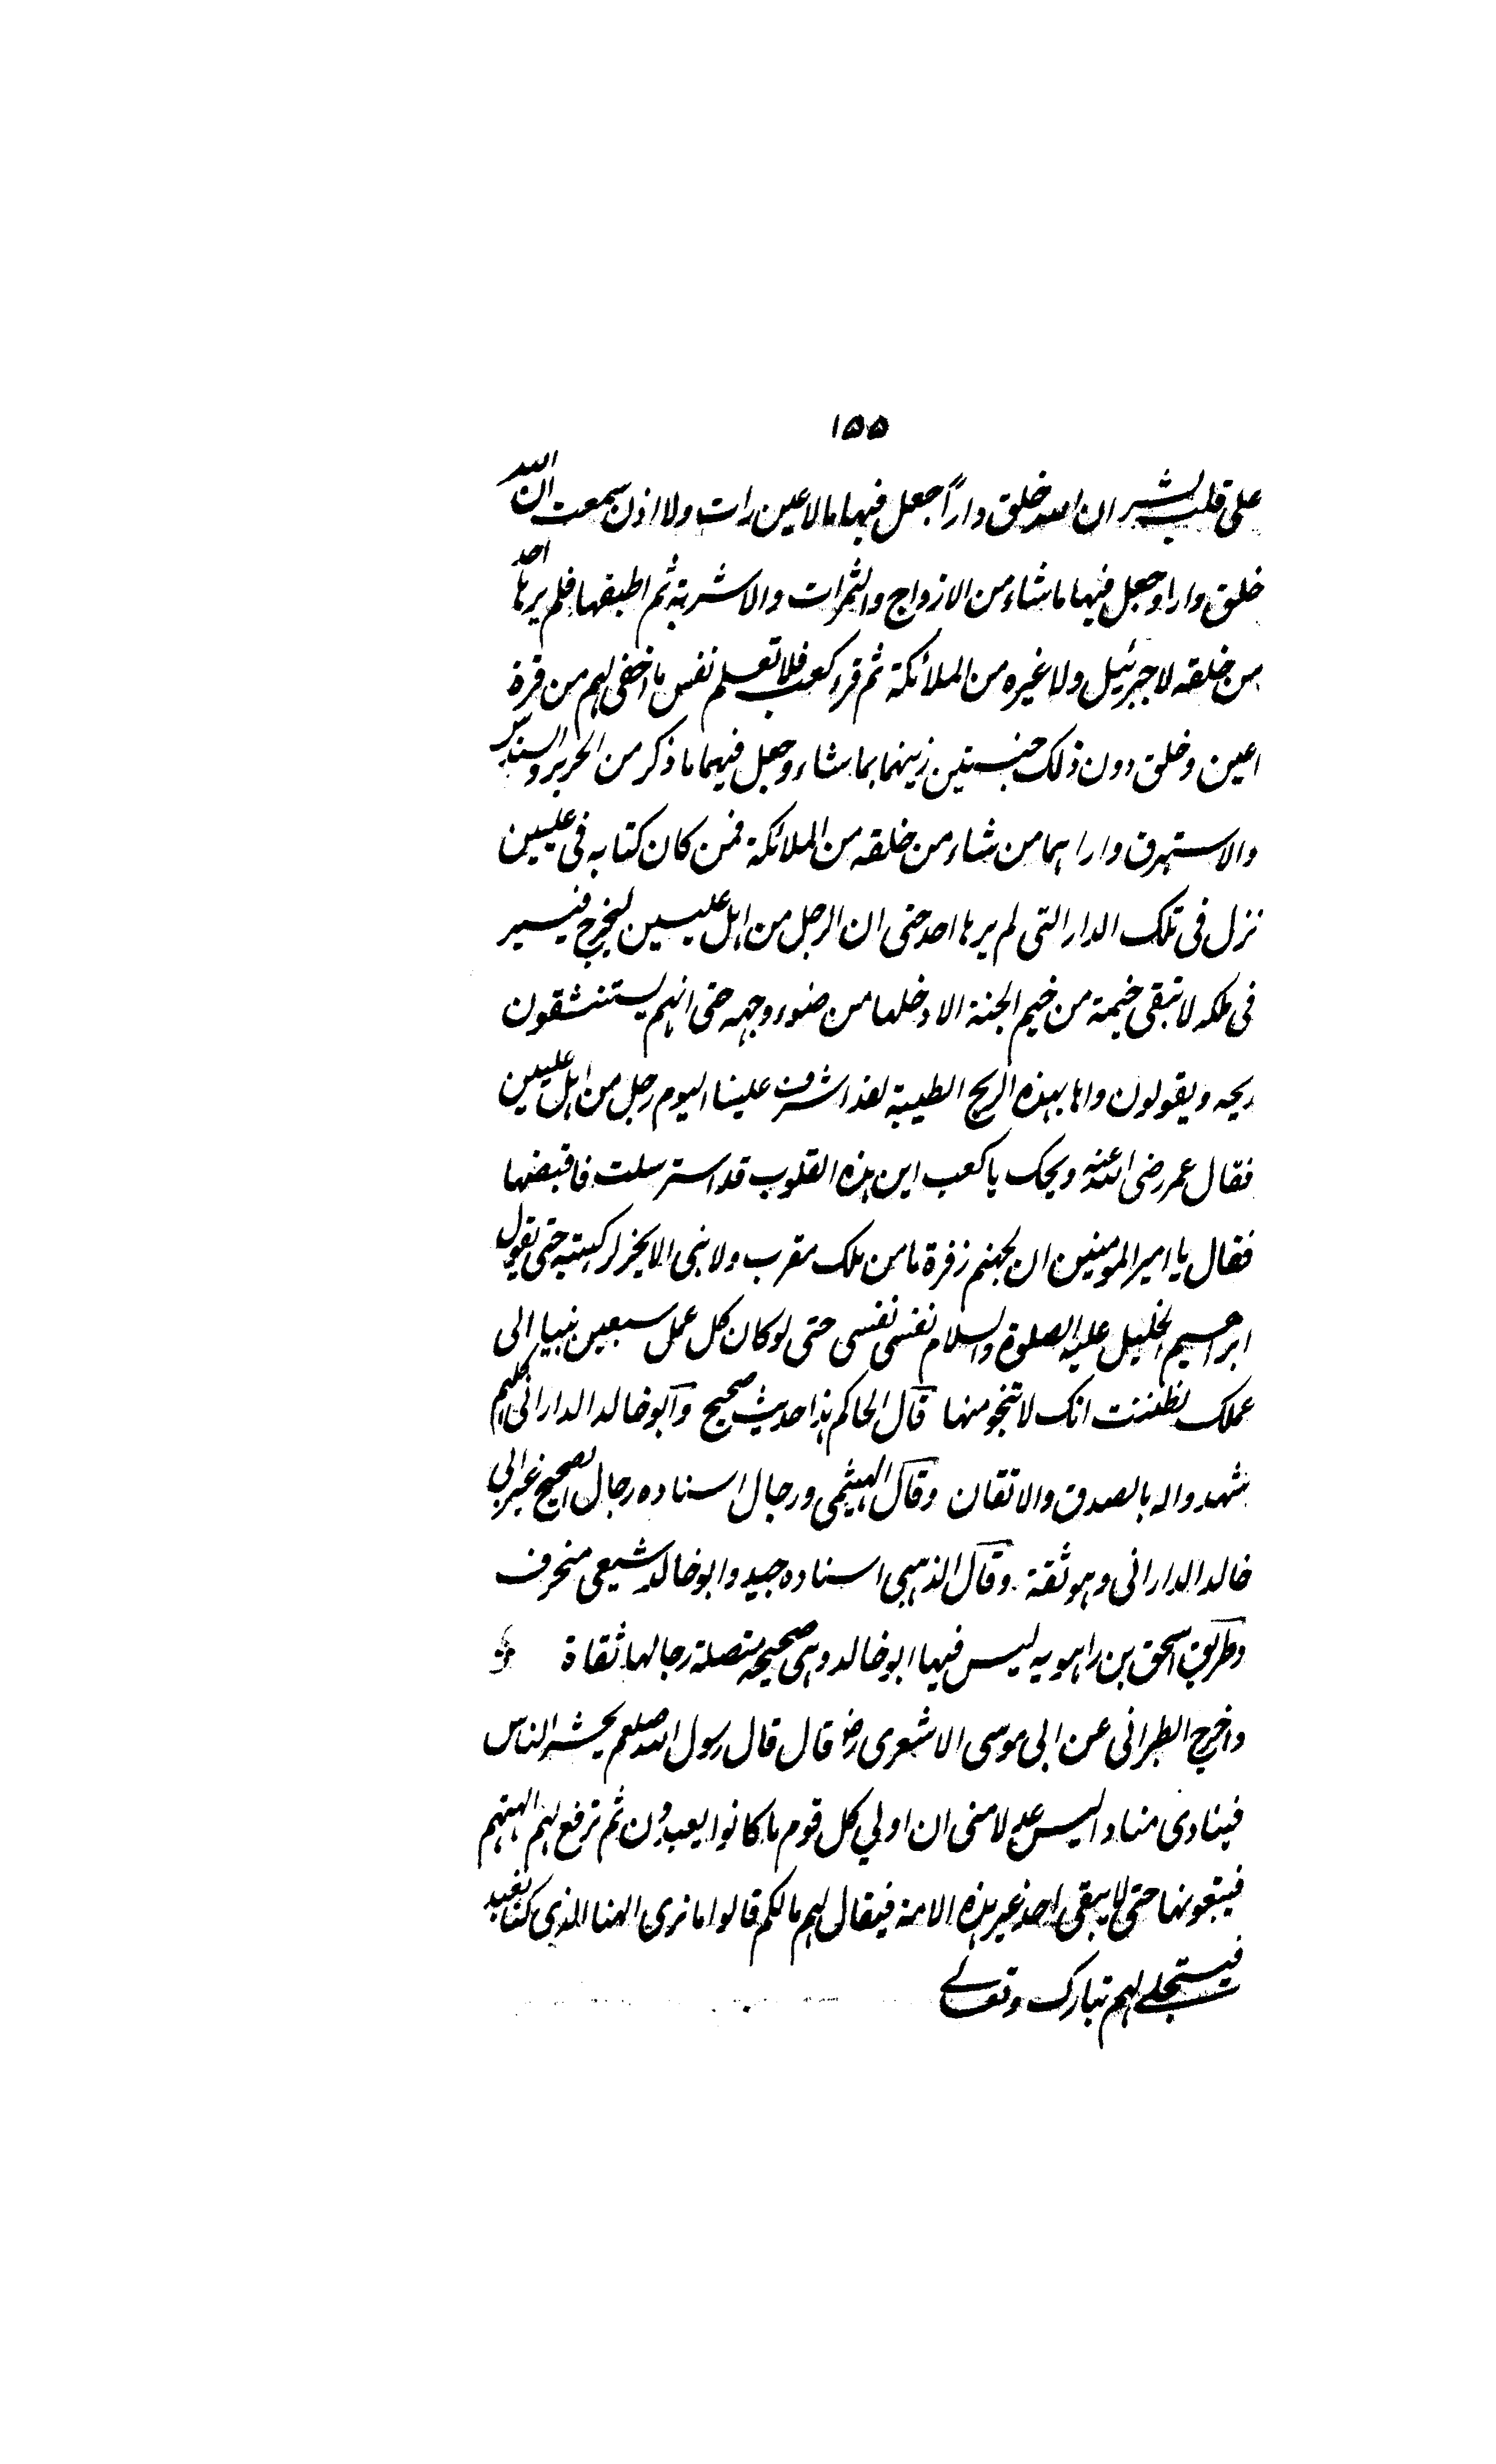 ۱۵۵
على قلب بشر ان الله خلق داراً جعل فيها مالا عين رات ولا اذن سمعت ان الله
خلق دارا وجعل فيها ما شاء من الازواج والثمرات والاشربة ثم اطبقها فلم يرها احد
من خلقه لا جبرئيل ولا غيره من الملائكة ثم قرء كعب فلا تعلم نفس ما اخفى لهم من قرة
اعين وخلق دون ذلك جنتين زينهما بما شاء وجعل فيهما ما ذكر من الحرير والسندس
والاستبرق واراهما من شاء من خلقه من الملائكة فمن كان كتابه فى عليين
نزل فى تلك الدار التى لم يرها احد حتى ان الرجل من اهل عليين ليخرج فيسير
فى ملكه لا تبقى خيمة من خيم الجنة الا دخلها من ضوء وجهه حتى انهم يستنشقون
ريحه ويقولون واها بهذه الريح الطيبة لقد اشرف علينا اليوم رجل من اهل عليين
فقال عمر رضى الله عنه ويحك يا كعب ان هذه القلوب قد استرسلت فاقبضها
فقال يا امير المومنين ان لجهنم زفرة ما من ملك مقرب ولا نبى الا يخر لركبتيه حتى يقول
ابراهيم الخليل عليه الصلوة والسلام نفسى نفسى حتى لو كان كل عمل سبعين نبيا الى
عملك لظننت انك لا تنجو منها قال الحاكم هذا حديث صحيح وابو خالد الدارانى كلهم
شهدوا له بالصدق والاتقان وقال الهيثمى ورجال اسناده رجال الصحيح غير ابى
خالد الدارانى وهو ثقة وقال الذهبى اسناده جيد وابو خالد شيعى منحرف
وطريق اسحق بن راهويه ليس فيها ابو خالد وهى صحيحة متصلة رجالها ثقاة
واخرج الطبرانى عن ابى موسى الاشعرى رض قال قال رسول الله صلعم يحشر الناس
فينادى مناد اليس عدلا منى ان اولي كل قوم ما كانوا يعبدون ثم ترفع لهم الهتهم
فيتبعونها حتى لا يبقى احد غير هذه الامة فيقال لهم مالكم قالوا ما نرى الهنا الذى كنا نعبد
فيتجلے لهم تبارك وتعالے